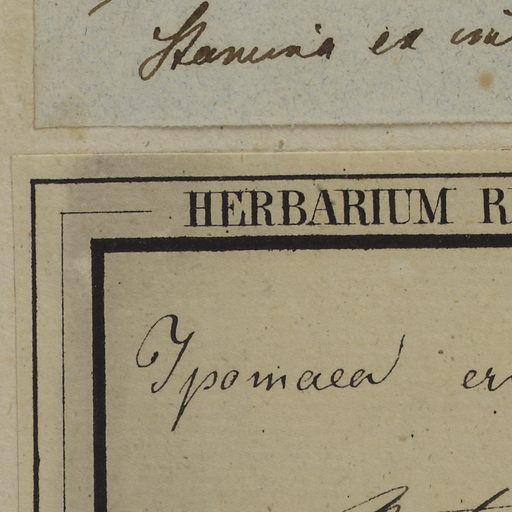 Stamina ex
HERBARIUM
Ipomaea er